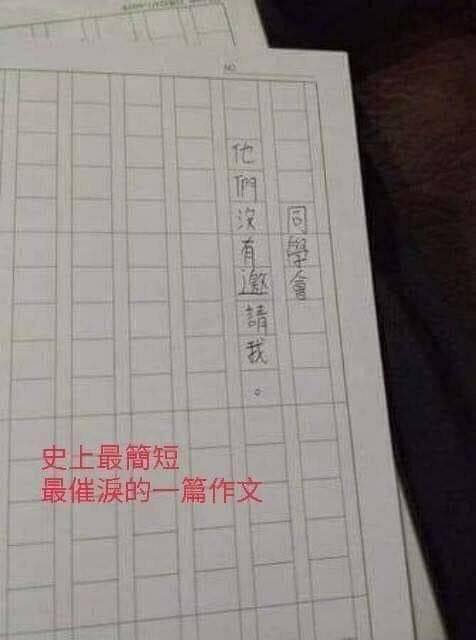 NO
同學會
他們沒有邀請我。
史上最簡短
最催淚的一篇作文